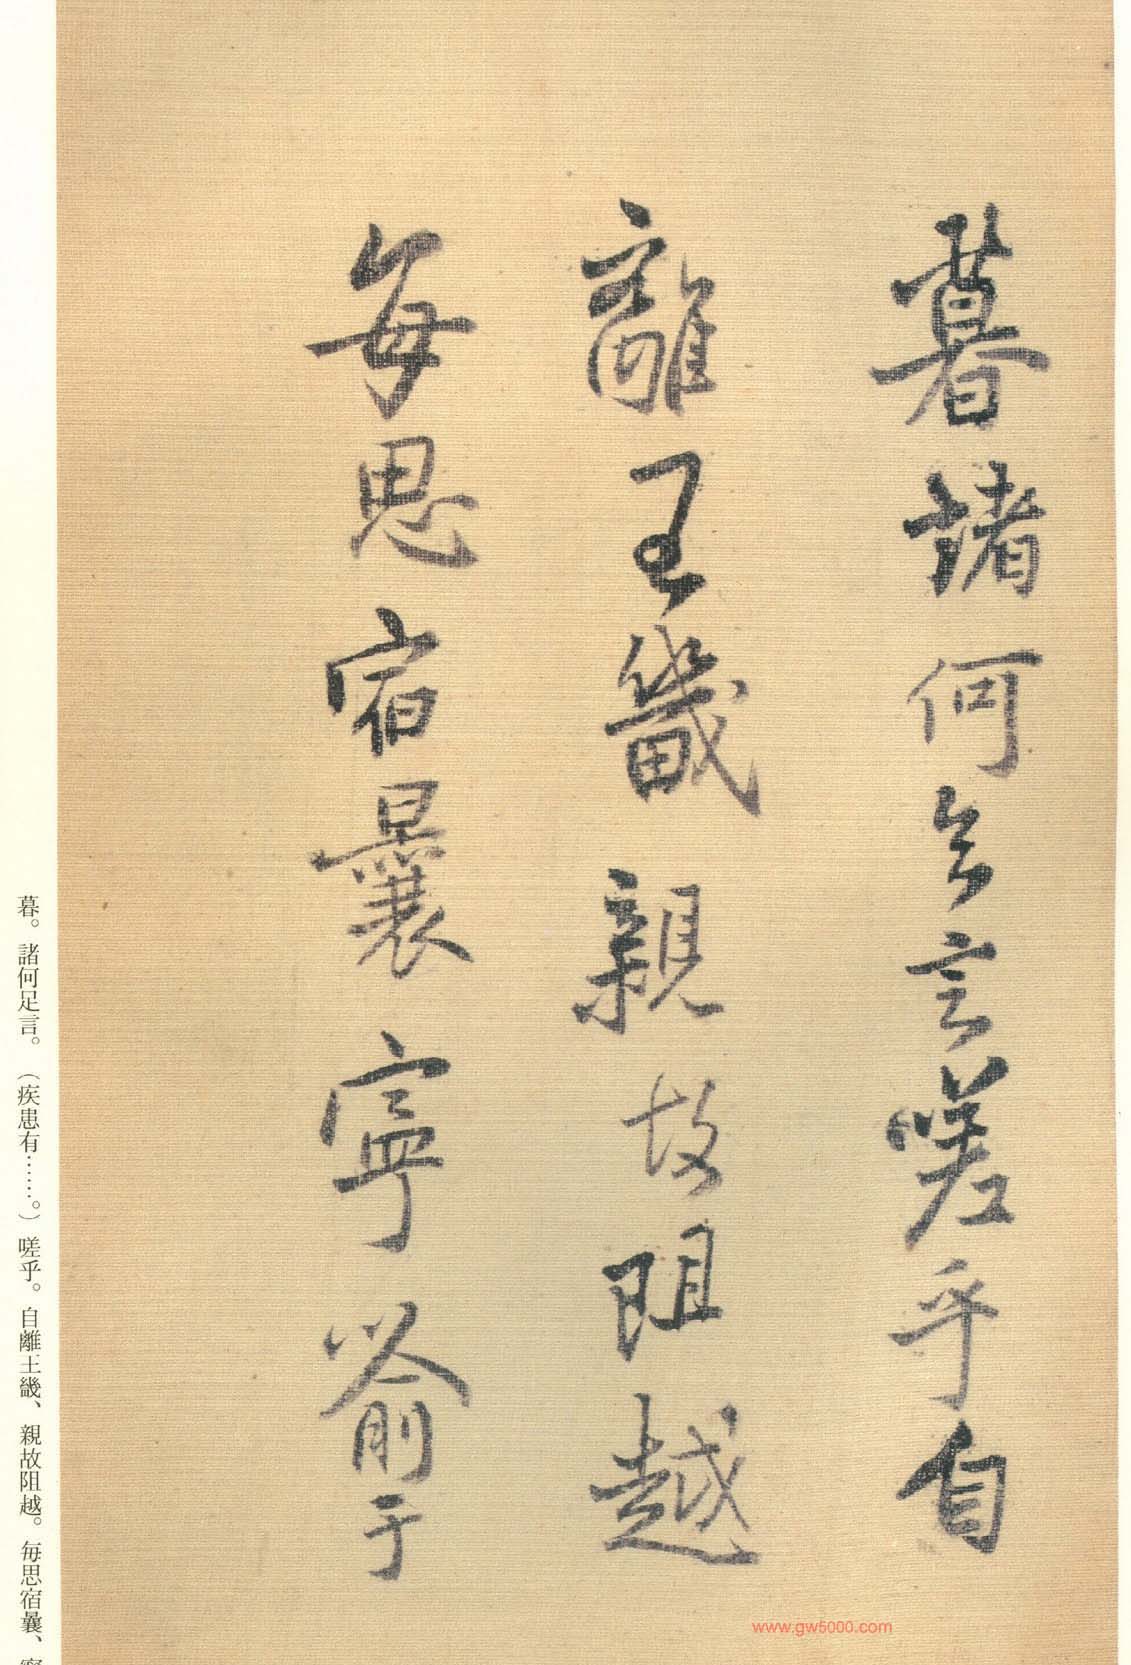 暮諸何足言嗟乎自
離王畿親故阻越
每思宿曩寧喻于
暮。諸何足言。（疾患有……。）嗟乎。自離王畿、親故阻越。毎思宿曩、
www.gw5000.com